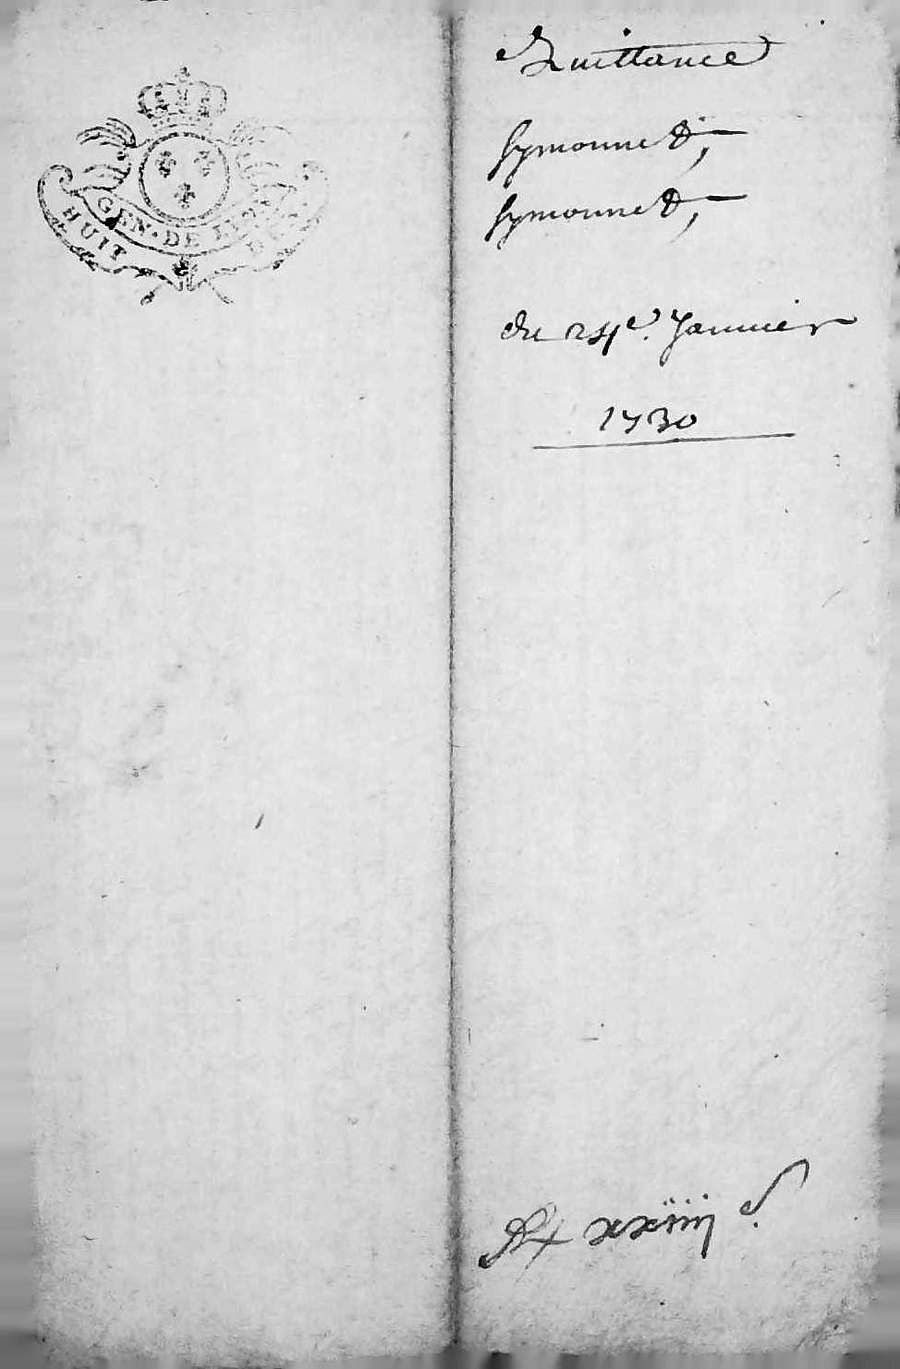 GEN · DE
HUIT
Quittance
Symonnet,
Symonnet,
du 24e. Januier
1730
xxiiij s.